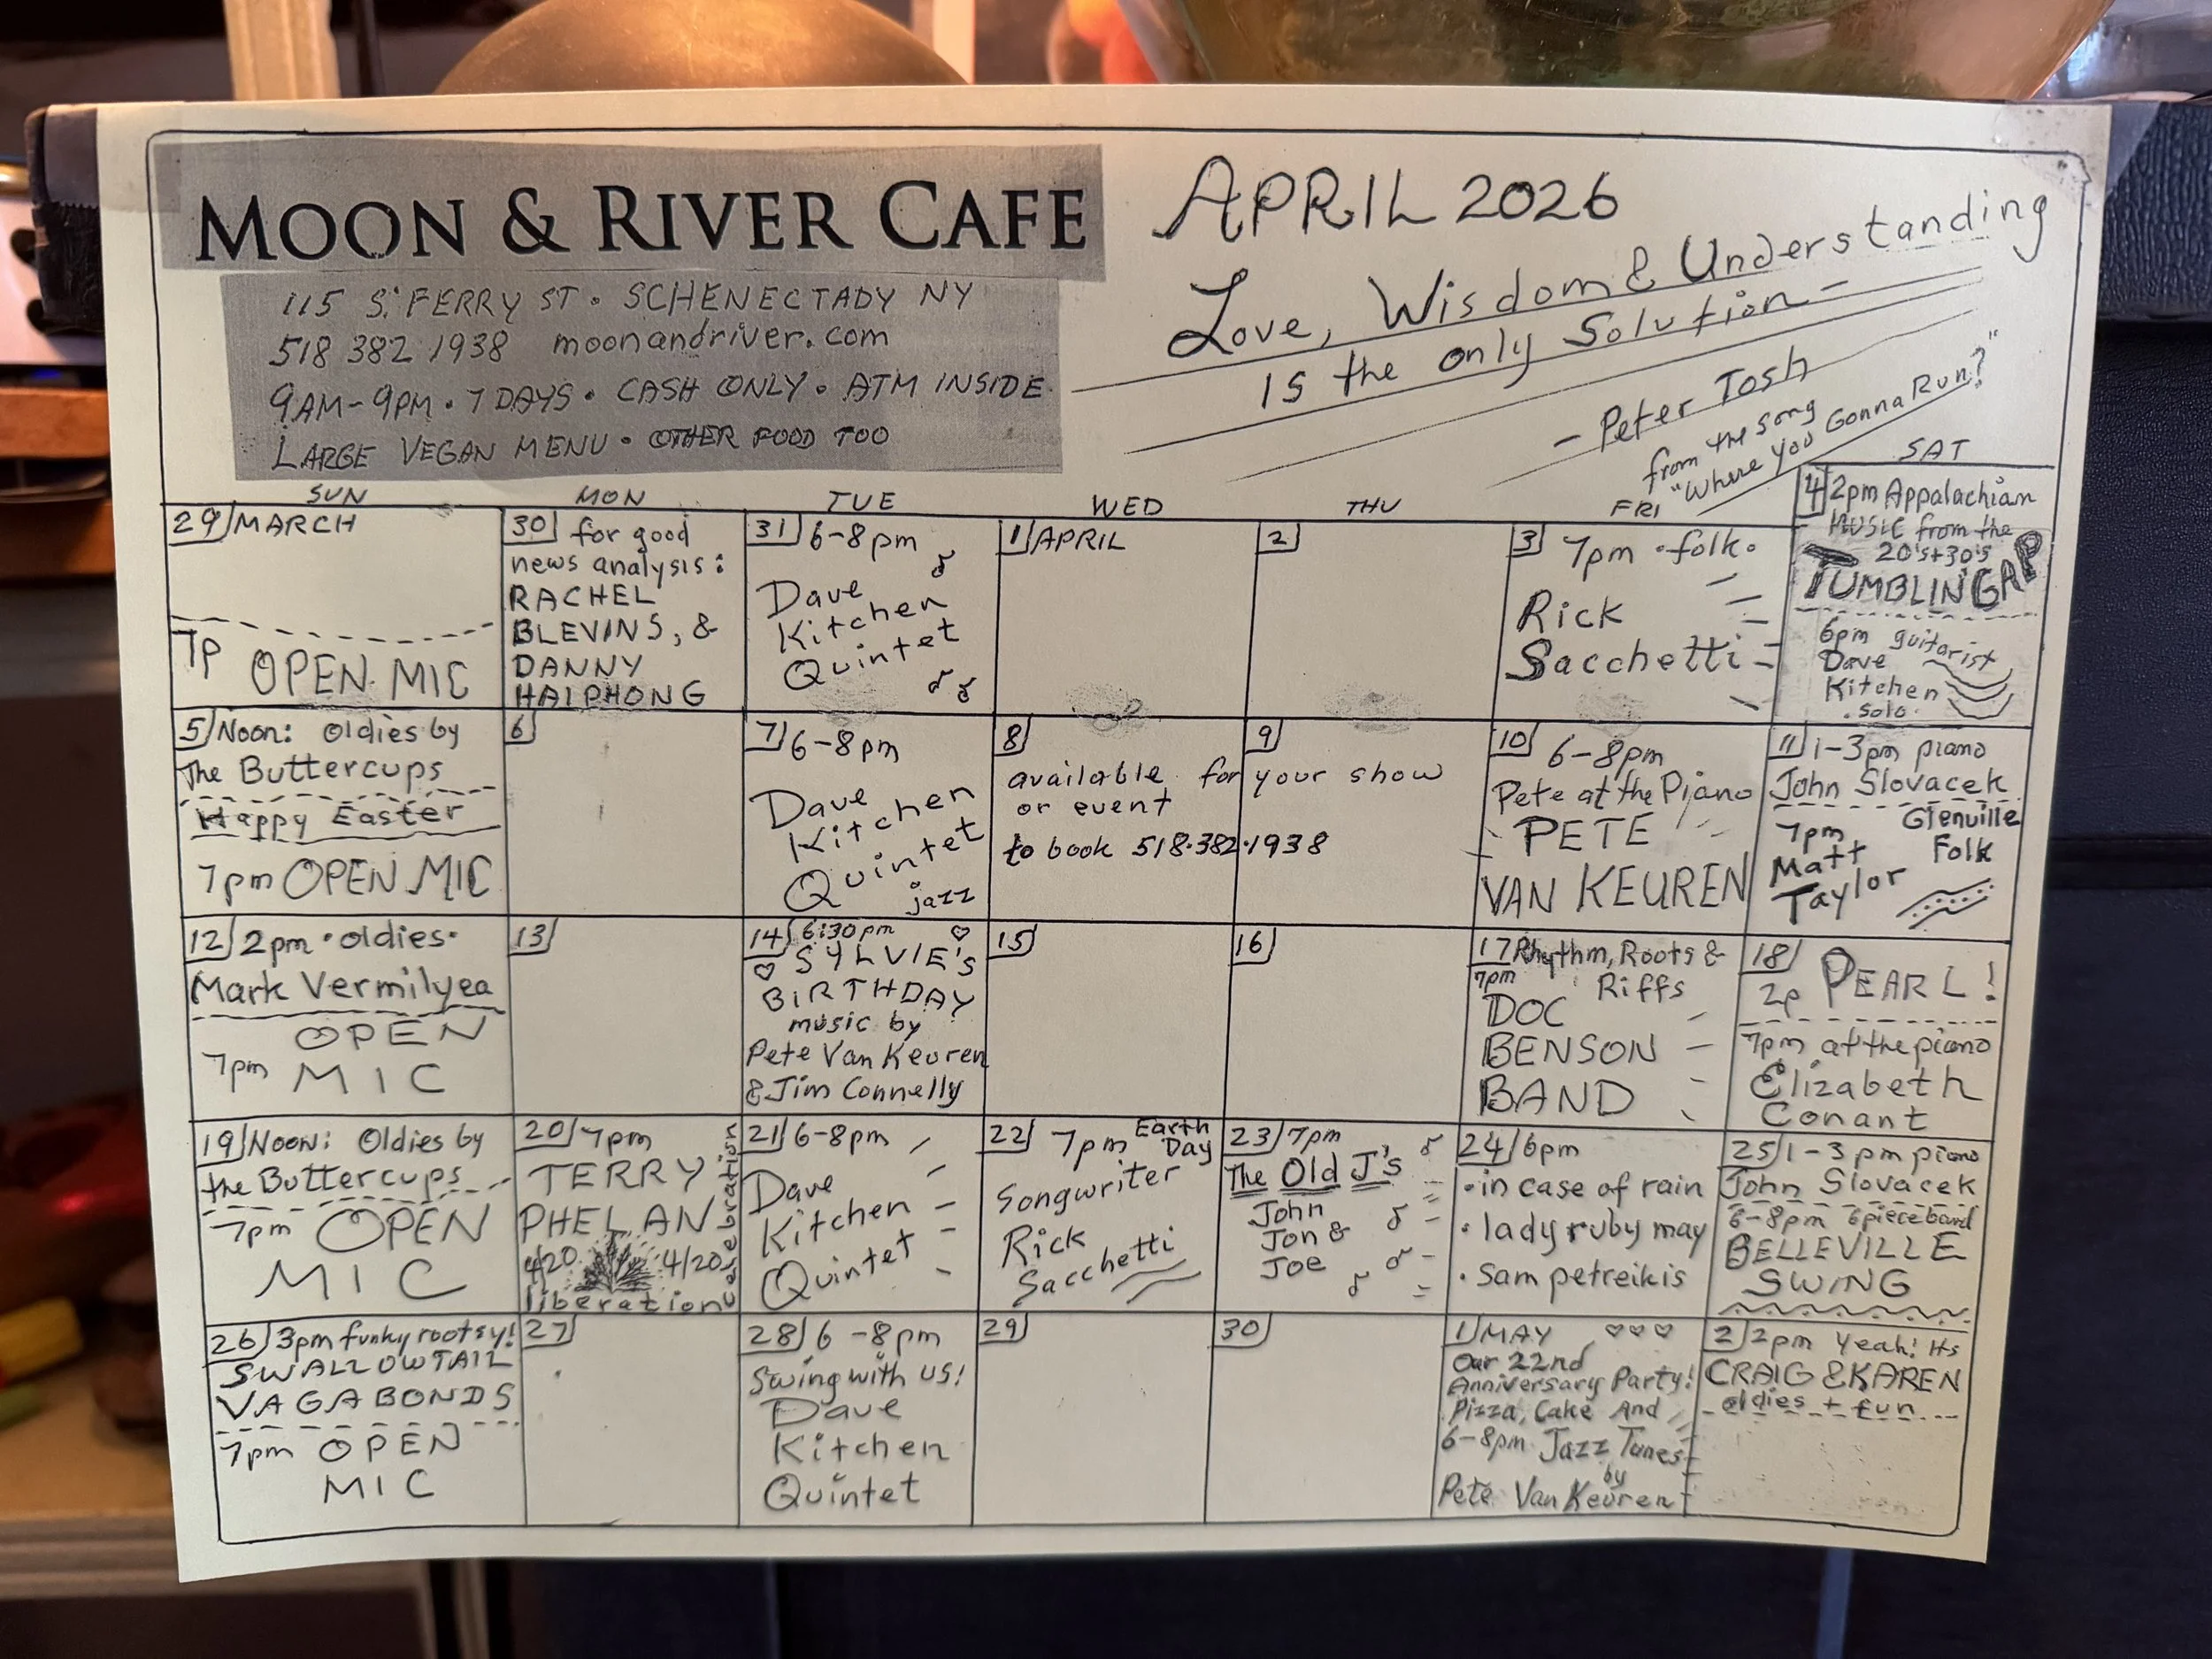 MOON & RIVER CAFE
115 S. FERRY ST • SCHENECTADY NY
518 382 1938 moonandriver.com
9AM-9PM • 7 DAYS • CASH ONLY • ATM INSIDE
LARGE VEGAN MENU • OTHER FOOD TOO
APRIL 2026
Love, Wisdom & Understanding
is the only Solution -
- Peter Tosh
from the song
"Where you Gonna Run?"
SUN MON TUE WED THU FRI SAT
29 MARCH
7p OPEN MIC
30 for good
news analysis:
RACHEL
BLEVINS, &
DANNY
HAIPHONG
31 6-8pm
Dave
Kitchen
Quintet
1 APRIL
2
3 7pm • folk •
Rick
Sacchetti
4 2pm Appalachian
MUSIC from the
20's+30's
TUMBLIN GAP
6pm guitarist
Dave
Kitchen
• solo •
5 Noon: Oldies by
The Buttercups
Happy Easter
7pm OPEN MIC
6
7 6-8pm
Dave
Kitchen
Quintet
jazz
8
9
available for your show
or event
to book 518•382•1938
10 6-8pm
Pete at the Piano
PETE
VAN KEUREN
11 1-3pm piano
John Slovacek
7pm Glenville
Matt Folk
Taylor
12 2pm • oldies •
Mark Vermilyea
OPEN
7pm MIC
13
14 6:30pm
SYLVIE'S
BIRTHDAY
music by
Pete Van Keuren
& Jim Connelly
15
16
17 Rhythm, Roots &
7pm Riffs
DOC
BENSON
BAND
18
2p PEARL!
7pm at the piano
Elizabeth
Conant
19 NOON: Oldies by
the Buttercups
7pm OPEN
MIC
20 7pm
TERRY
PHELAN
4/20 4/20
liberation
21 6-8pm
Dave
Kitchen
Quintet
22 7pm Earth
Day
Songwriter
Rick
Sacchetti
23 7pm
The Old J's
John
Jon &
Joe
24 6pm
• in case of rain
• lady ruby may
• sam petreikis
25 1-3pm piano
John Slovacek
6-8pm 6 piece band
BELLEVILLE
SWING
26 3pm funky rootsy!
SWALLOWTAIL
VAGABONDS
7pm OPEN
MIC
27
28 6-8pm
Swing with us!
Dave
Kitchen
Quintet
29
30
1 MAY
Our 22nd
Anniversary Party!
Pizza, Cake And
6-8pm Jazz Tunes
by
Pete Van Keuren
2 2pm Yeah! Its
CRAIG & KAREN
oldies + fun